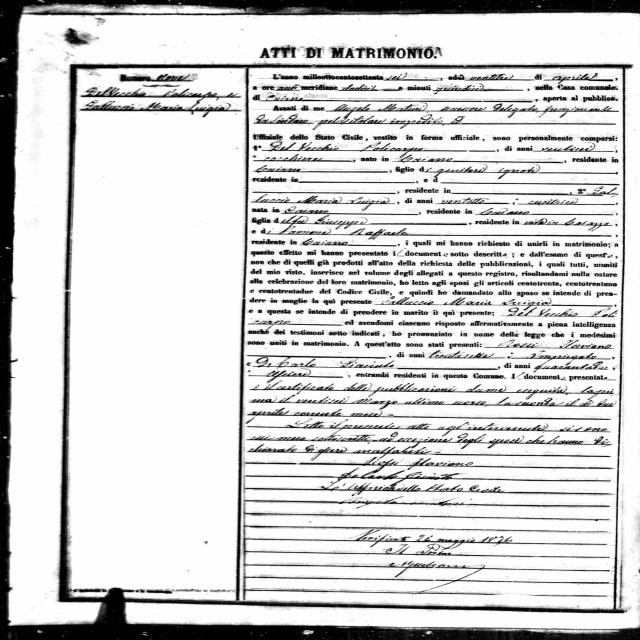 ATTI DI MATRIMONIO.
Numero nove
Del Vecchio Policarpo, e
Galluccio Maria Luigia
L'anno milleottocentosettanta sei, addì ventitre di aprile,
a ore ant meridiane dodici e minuti quindici, nella Casa comunale
di Caiano, aperta al pubblico.
Avanti di me Angelo assessore delegato funzionante
da Sindaco pel titolare impedito,
Uffiziale dello Stato Civile, vestito in forma uffiziale, sono personalmente comparsi:
1° Del Vecchio Policarpo, di anni,
cocchiere, nato in Caiano, residente in
Caiano, figlio di genitori ignoti
residente in, e di
, residente in, 2° Gal
luccio Maria Luigia, di anni ventotto, cucitrice
nata in Caiano, residente in Caiano,
figlia di Giuseppe, residente in
e di Raffaela
residente in Caiano, i quali mi hanno richiesto di unirli in matrimonio; a
questo effetto mi hanno presentato i documenti sotto descritti; e dall'esame di questi,
non che di quelli già prodotti all'atto della richiesta delle pubblicazioni, i quali tutti, muniti
del mio visto, inserisco nel volume degli allegati a questo registro, risultandomi nulla ostare
alla celebrazione del loro matrimonio, ho letto agli sposi gli articoli centotrenta, centotrentuno
e centotrentadue del Codice Civile, e quindi ho domandato allo sposo se intende di pren-
dere in moglie la quì presente Galluccio Maria Luigia
e a questa se intende di prendere in marito il quì presente; Del Vecchio Poli
carpo ed avendomi ciascuno risposto affermativamente a piena intelligenza
anche dei testimoni sotto indicati, ho pronunziato in nome della legge che i medesimi
sono uniti in matrimonio. A quest'atto sono stati presenti: Rossi Flaviano
, di anni trentasette, Impiegato, e
De Carlo Giacinto, di anni quarantadue
, entrambi residenti in questo Comune. I documenti presentati
è il certificato delle pubblicazioni da me eseguite, la pri
ma il ventisei Marzo ultimo scorso, la seconda il dì due
aprile corrente mese.
Letto il presente atto agli intervenuti si sono
meco sottoscritti, ad eccezione degli sposi che hanno di
chiarato di essere analfabeti.
Rossi Flaviano
De Carlo Giacinto
L'Uffiziale dello Stato Civile
Verificato 26 maggio 1876
Il Pretore